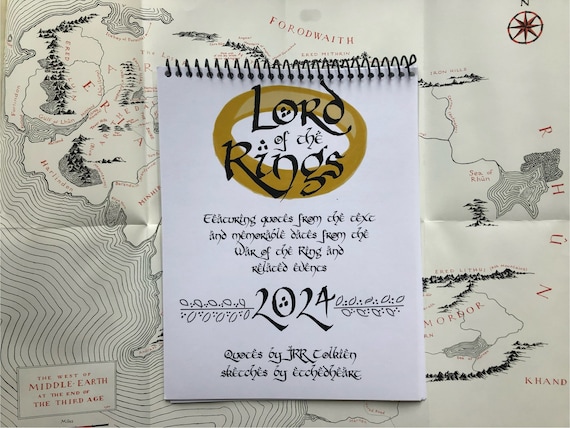 FORODWAITH
ERED MITHRIN
IRON HILLS
Sea of
Rhûn
R
H
Û
N
ERED LITHUI
MORDOR
KHAND
Lord
of the
Rings
Featuring quotes from the text
and memorable dates from the
War of the Ring and
related events
2024
Quotes by JRR Tolkien
sketches by etchedheart
THE WEST OF
MIDDLE-EARTH
AT THE END OF
THE THIRD AGE
Miles